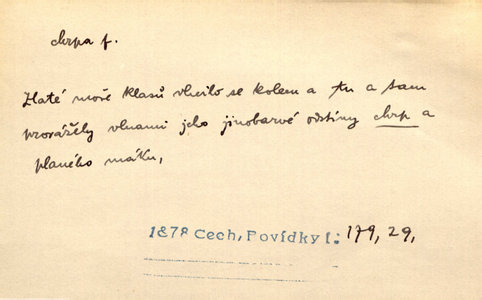 chrpa f.
Zlaté moře klasů vlnilo se kolem a tu a tam
prorážely vlnami jeho jinobarvé odstíny chrp a
planého máku,
1878 Cech, Povídky I: 179, 29,